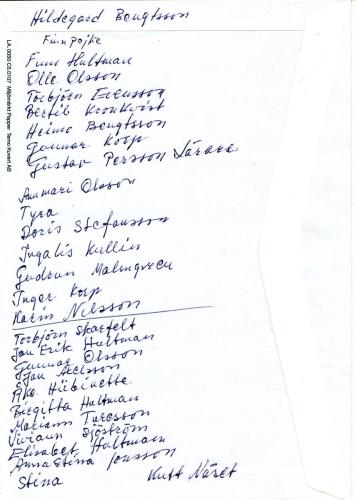 Hildegard Bengtsson
Finnpojke
Finn Hultman
Olle Olsson
Torbjörn Svensson
Bertil Kronkvist
Heimo Bengtsson
Gunnar Koop
Gustav Persson Lärare
Annmari Olsson
Tyra
Doris Stefansson
Ingalis Kullin
Gudrun Malmgren
Inger Korp
Karin Nilsson
Torbjörn Skarfelt
Jan Erik Hultman
Gunnar Olsson
Jan Axelsson
Åke Hübinette
Birgitta Hultman
Mariann Turesson
Viviann Sjöström
Elisabet Hultman
AnnaStina Jonsson
Stina
Kutt Näret
LA. 0090 C5.0107 Miljömärkt Papper Tamo Kuvert AB